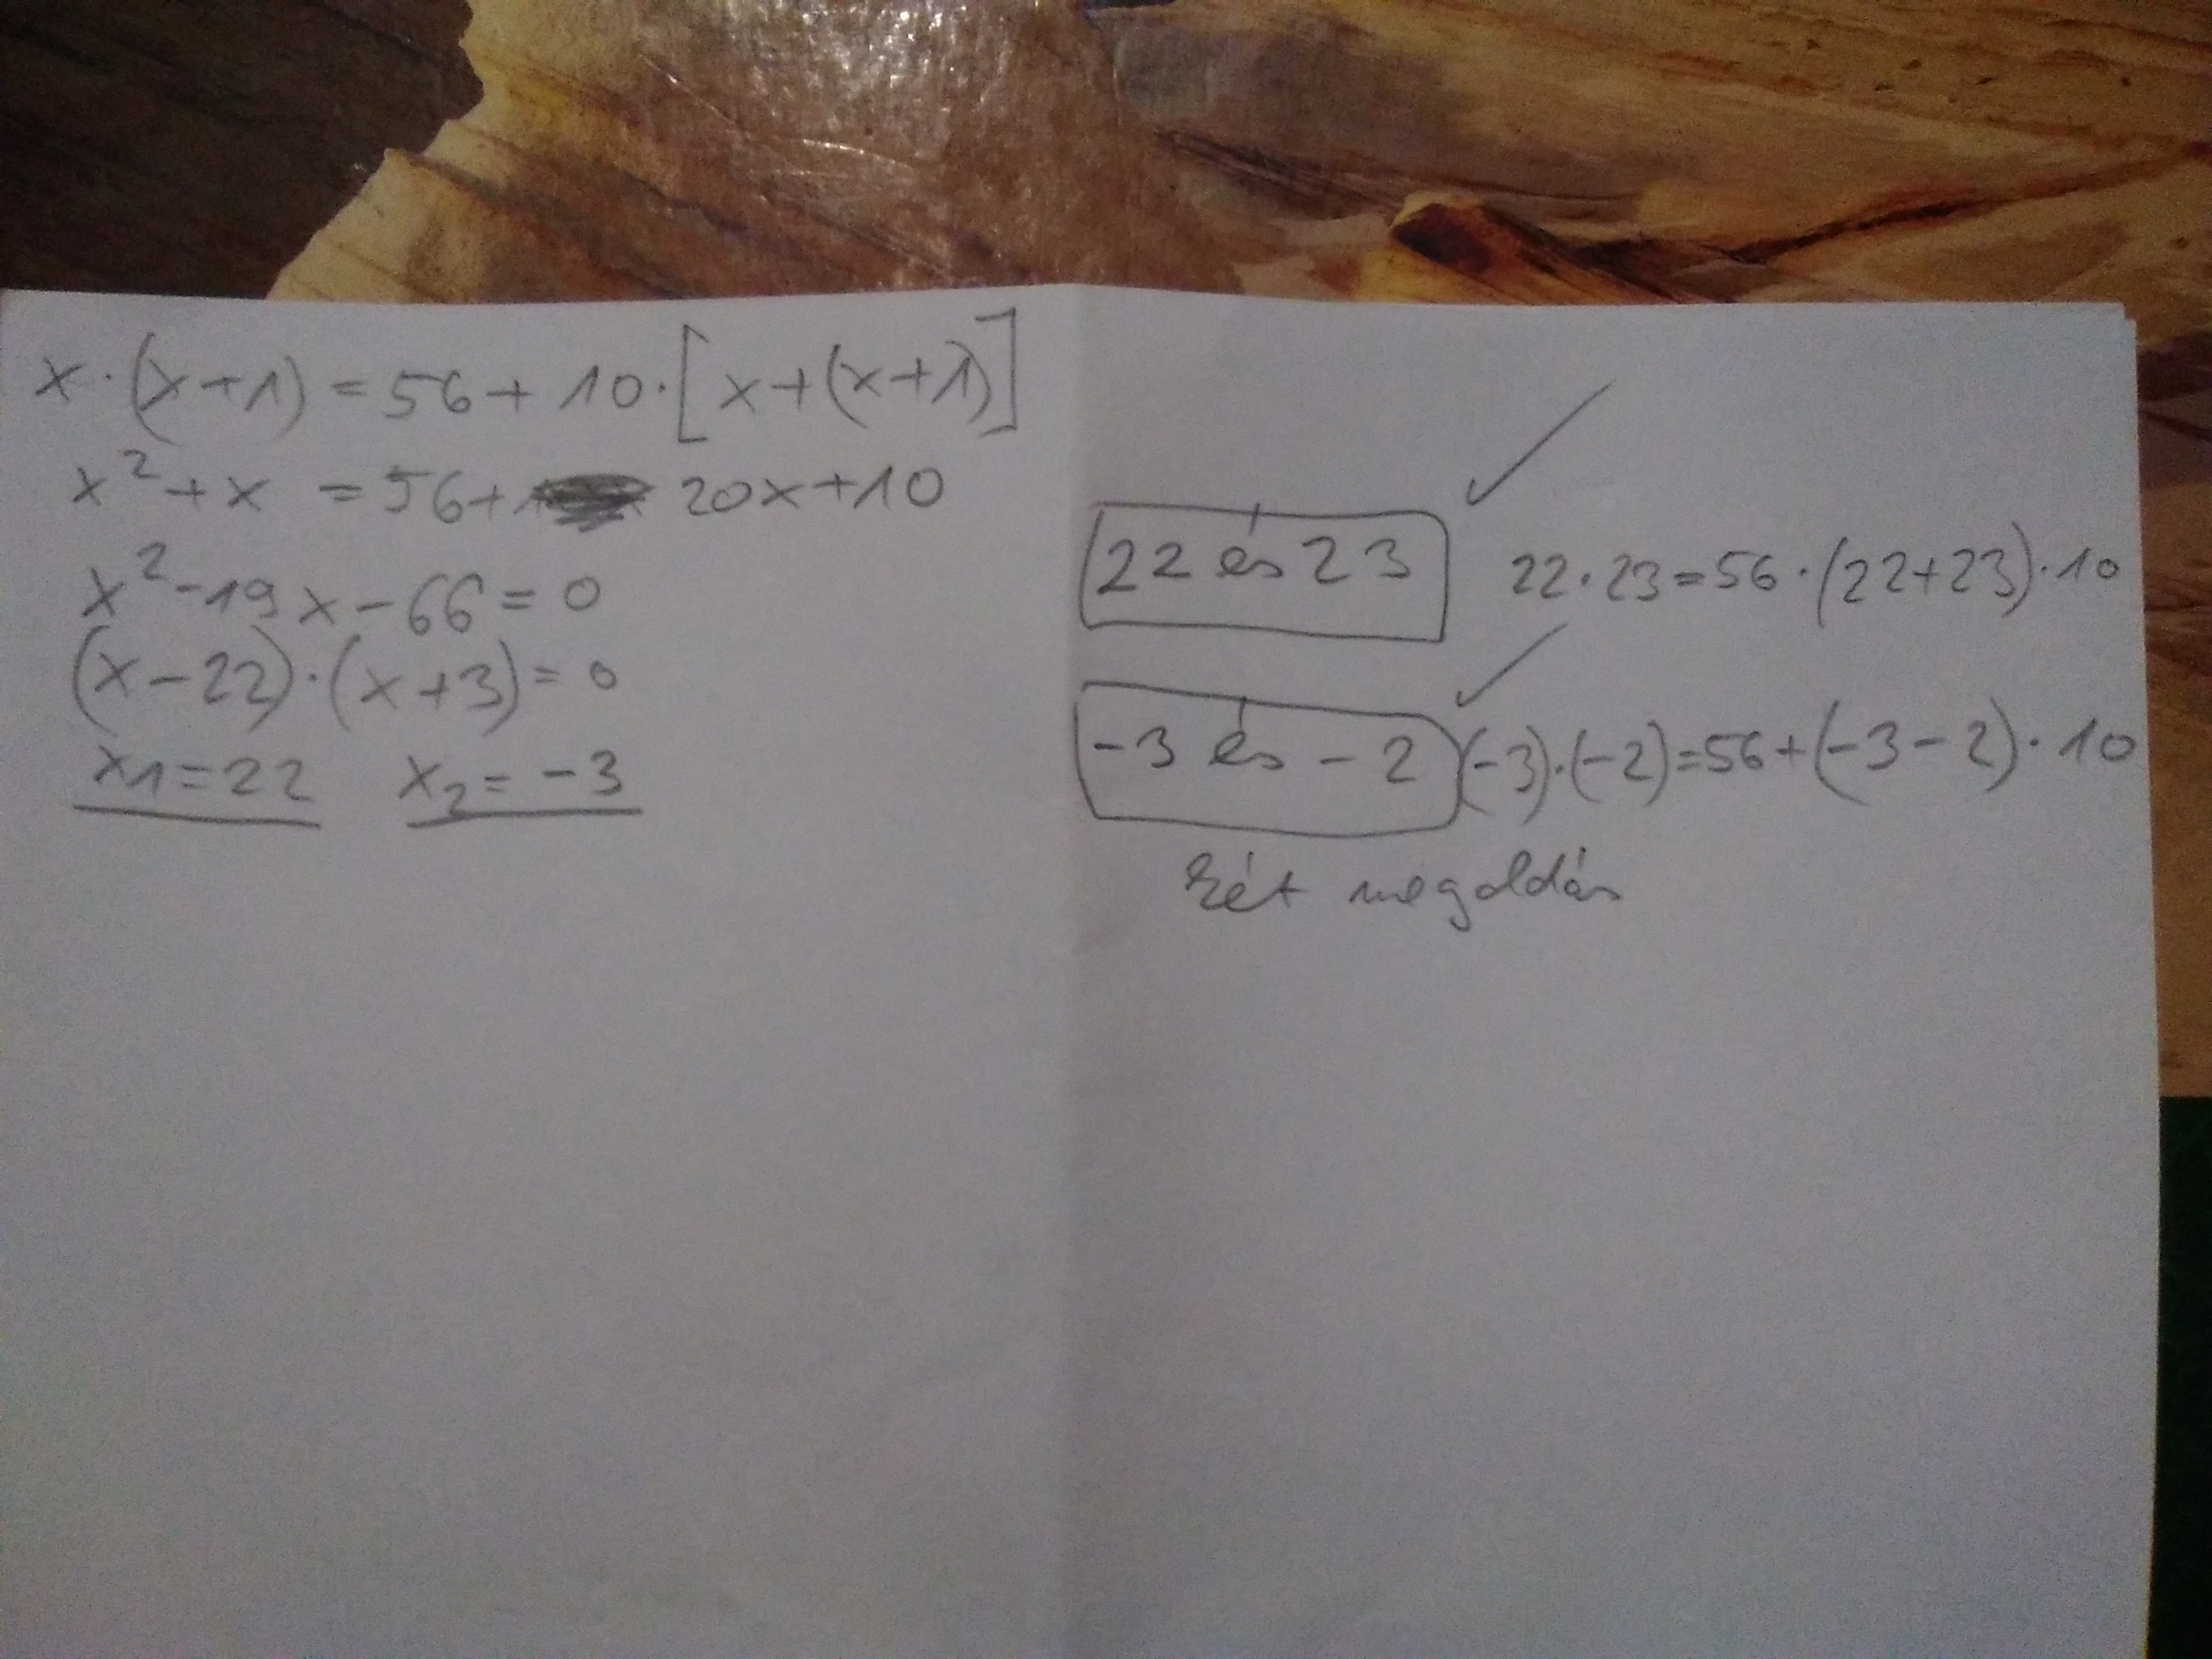 x·(x+1)=56+10·[x+(x+1)]
x²+x =56+ 20x+10
x²-19x-66=0
(x-22)·(x+3)=0
x1=22 x2=-3
22 és 23 22·23=56·(22+23)·10
-3 és -2 (-3)·(-2)=56+(-3-2)·10
két megoldás